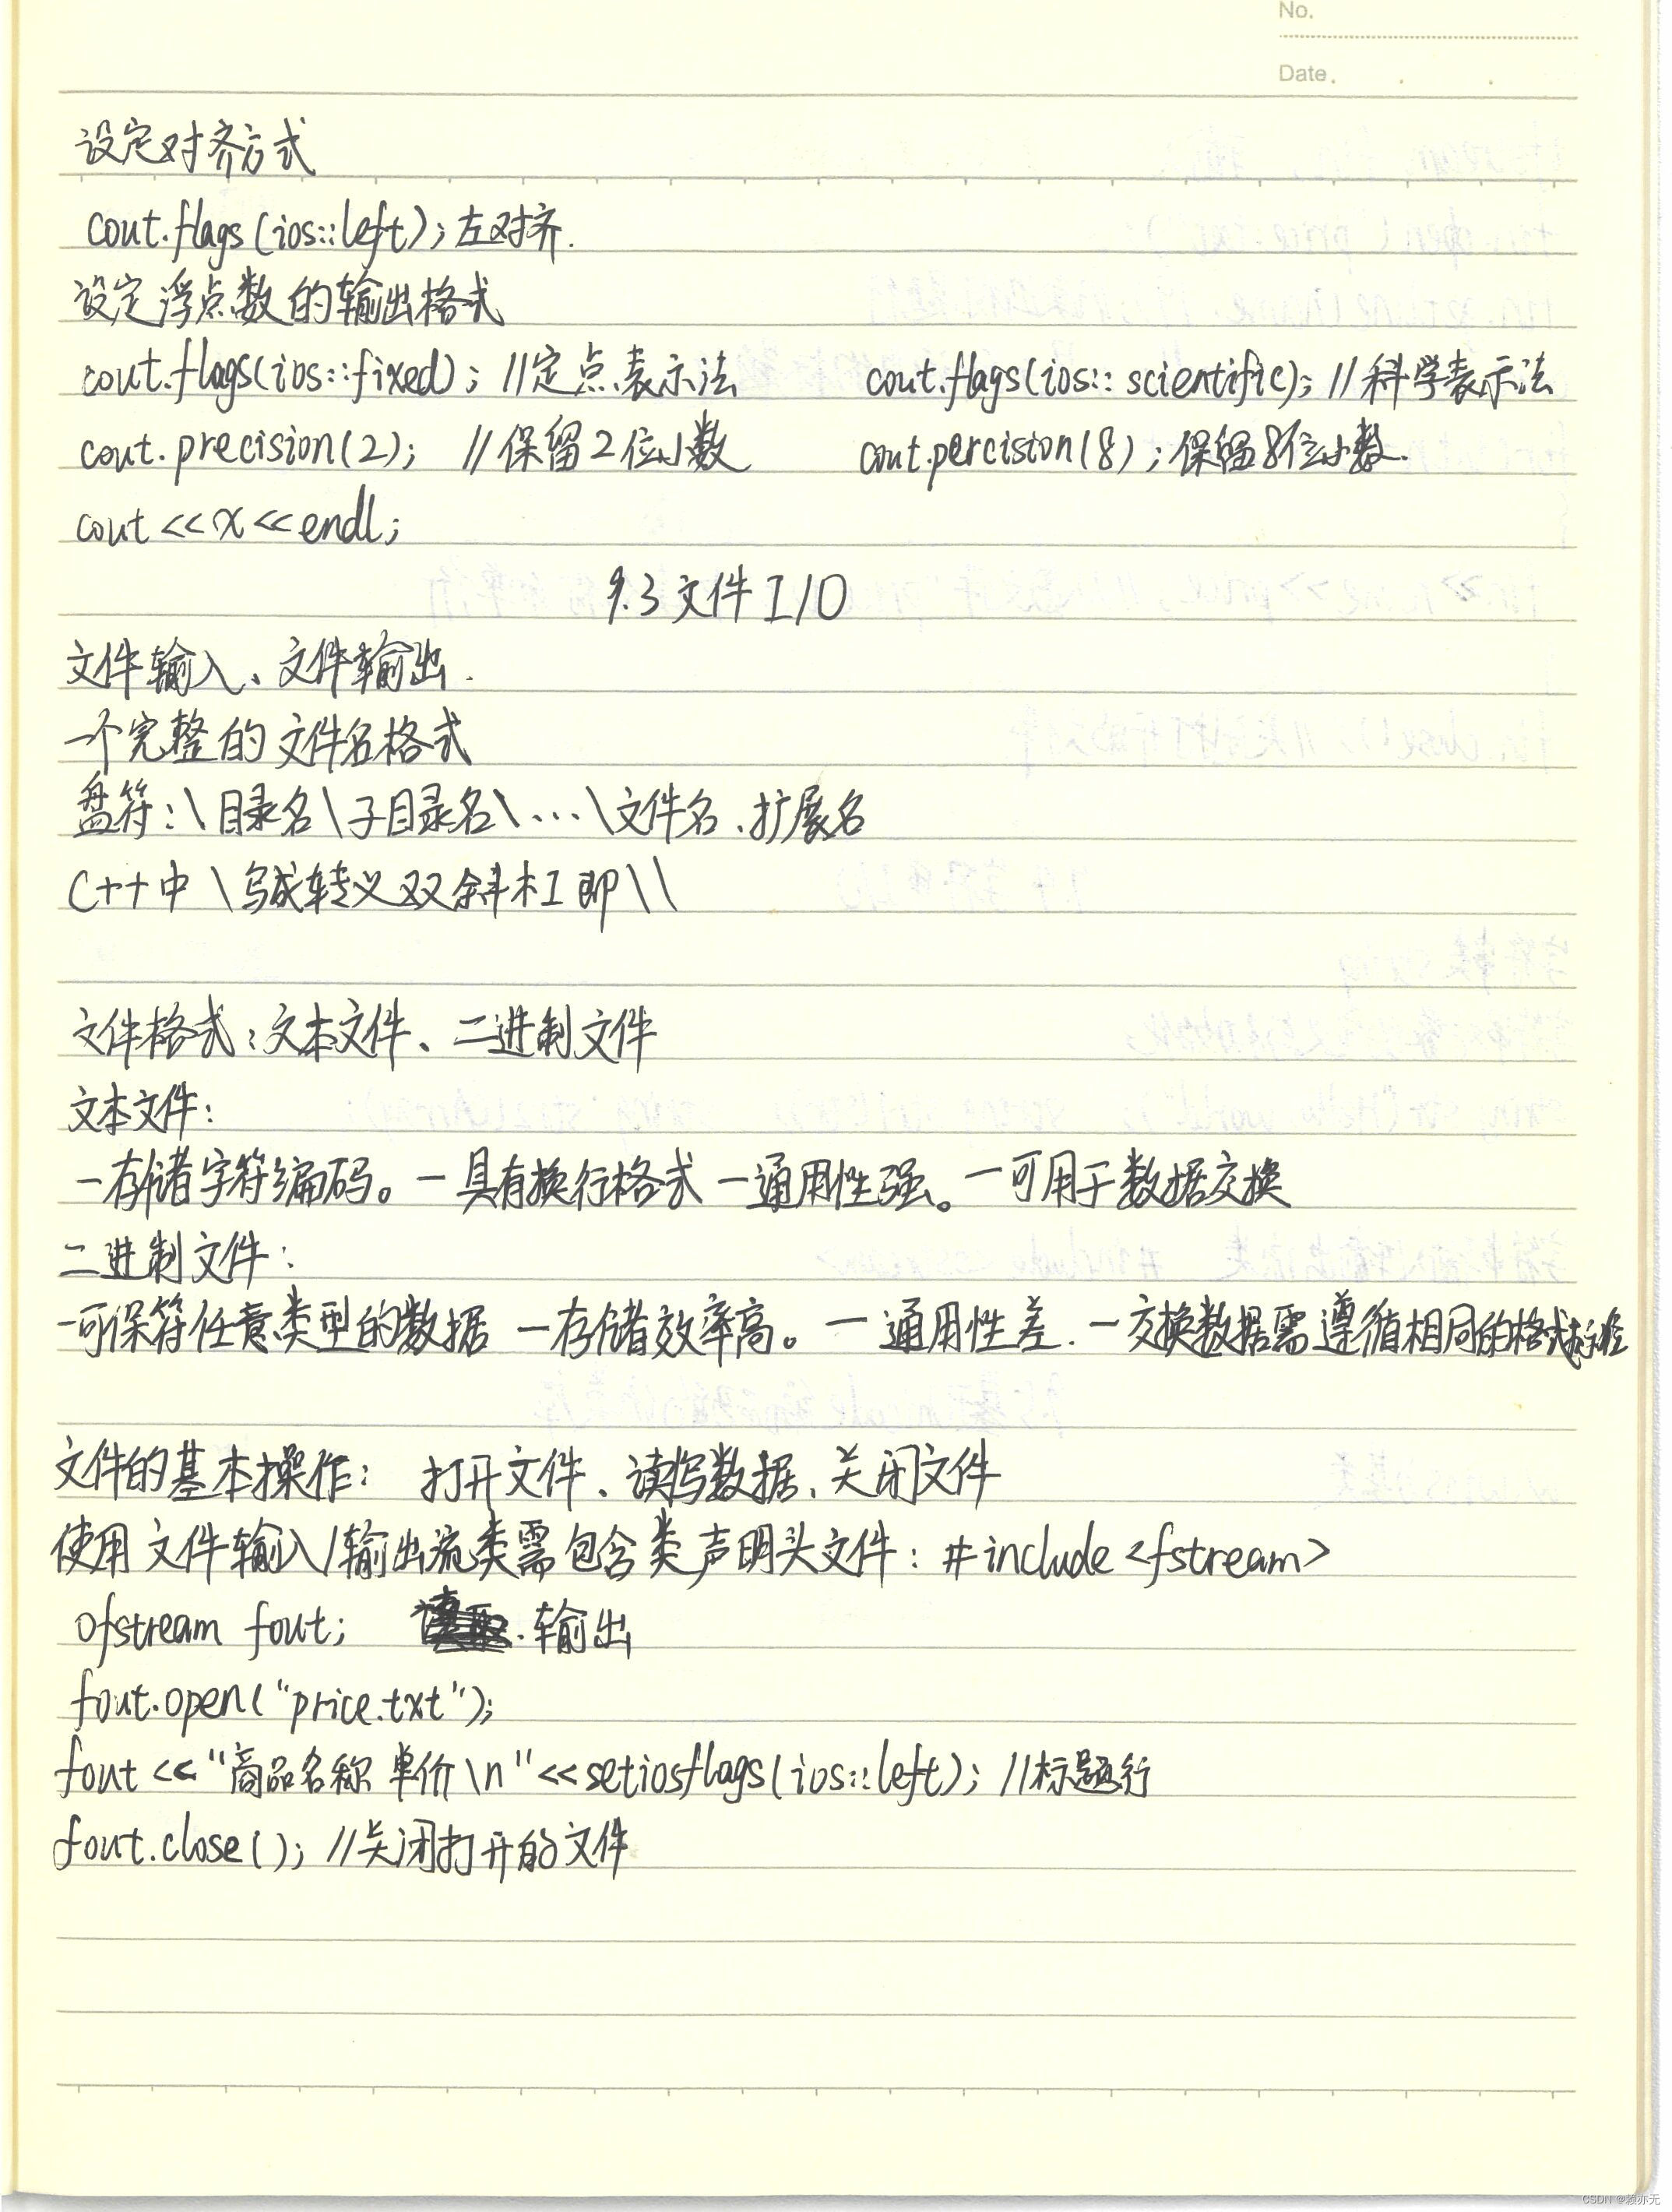 No.
Date.
设定对齐方式
cout.flags(ios::left); 左对齐.
设定浮点数的输出格式
cout.flags(ios::fixed); //定点表示法 cout.flags(ios::scientific); //科学表示法
cout.precision(2); //保留2位小数 cout.percision(8); 保留8位小数.
cout<<x<<endl;
9.3 文件 I/O
文件输入、文件输出.
一个完整的文件名格式
盘符:\目录名\子目录名\...\文件名.扩展名
C++中\写成转义双斜杠即\\
文件格式:文本文件、二进制文件
文本文件:
-存储字符编码。-具有换行格式 -通用性强。-可用于数据交换
二进制文件:
-可保符任意类型的数据 -存储效率高。- 通用性差. -交换数据需遵循相同的格式标准
文件的基本操作: 打开文件、读写数据、关闭文件
使用文件输入/输出流类需包含类声明头文件:#include<fstream>
ofstream fout; 输出
fout.open("price.txt");
fout<<"商品名称 单价\n"<<setiosflags(ios::left); //标题行
fout.close(); //关闭打开的文件
CSDN @颖亦无